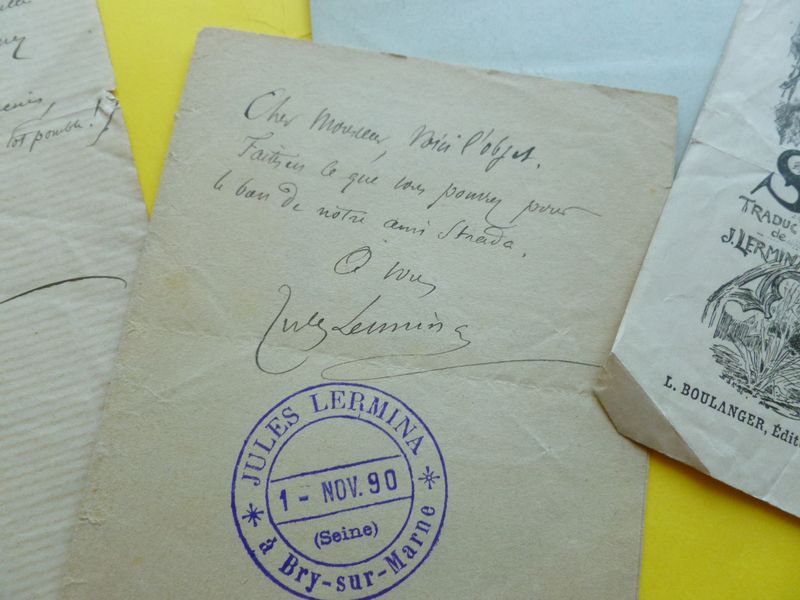 tot possible!)
Cher Monsieur, Voici l'objet.
Faites en ce que vous pouvez pour
le ban de notre ami Strada.
A vous
Jules Lermina
JULES LERMINA
1 - NOV. 90
(Seine)
à Bry-sur-Marne
S
TRADUC
de
J. LERMINA
L. BOULANGER, Édit